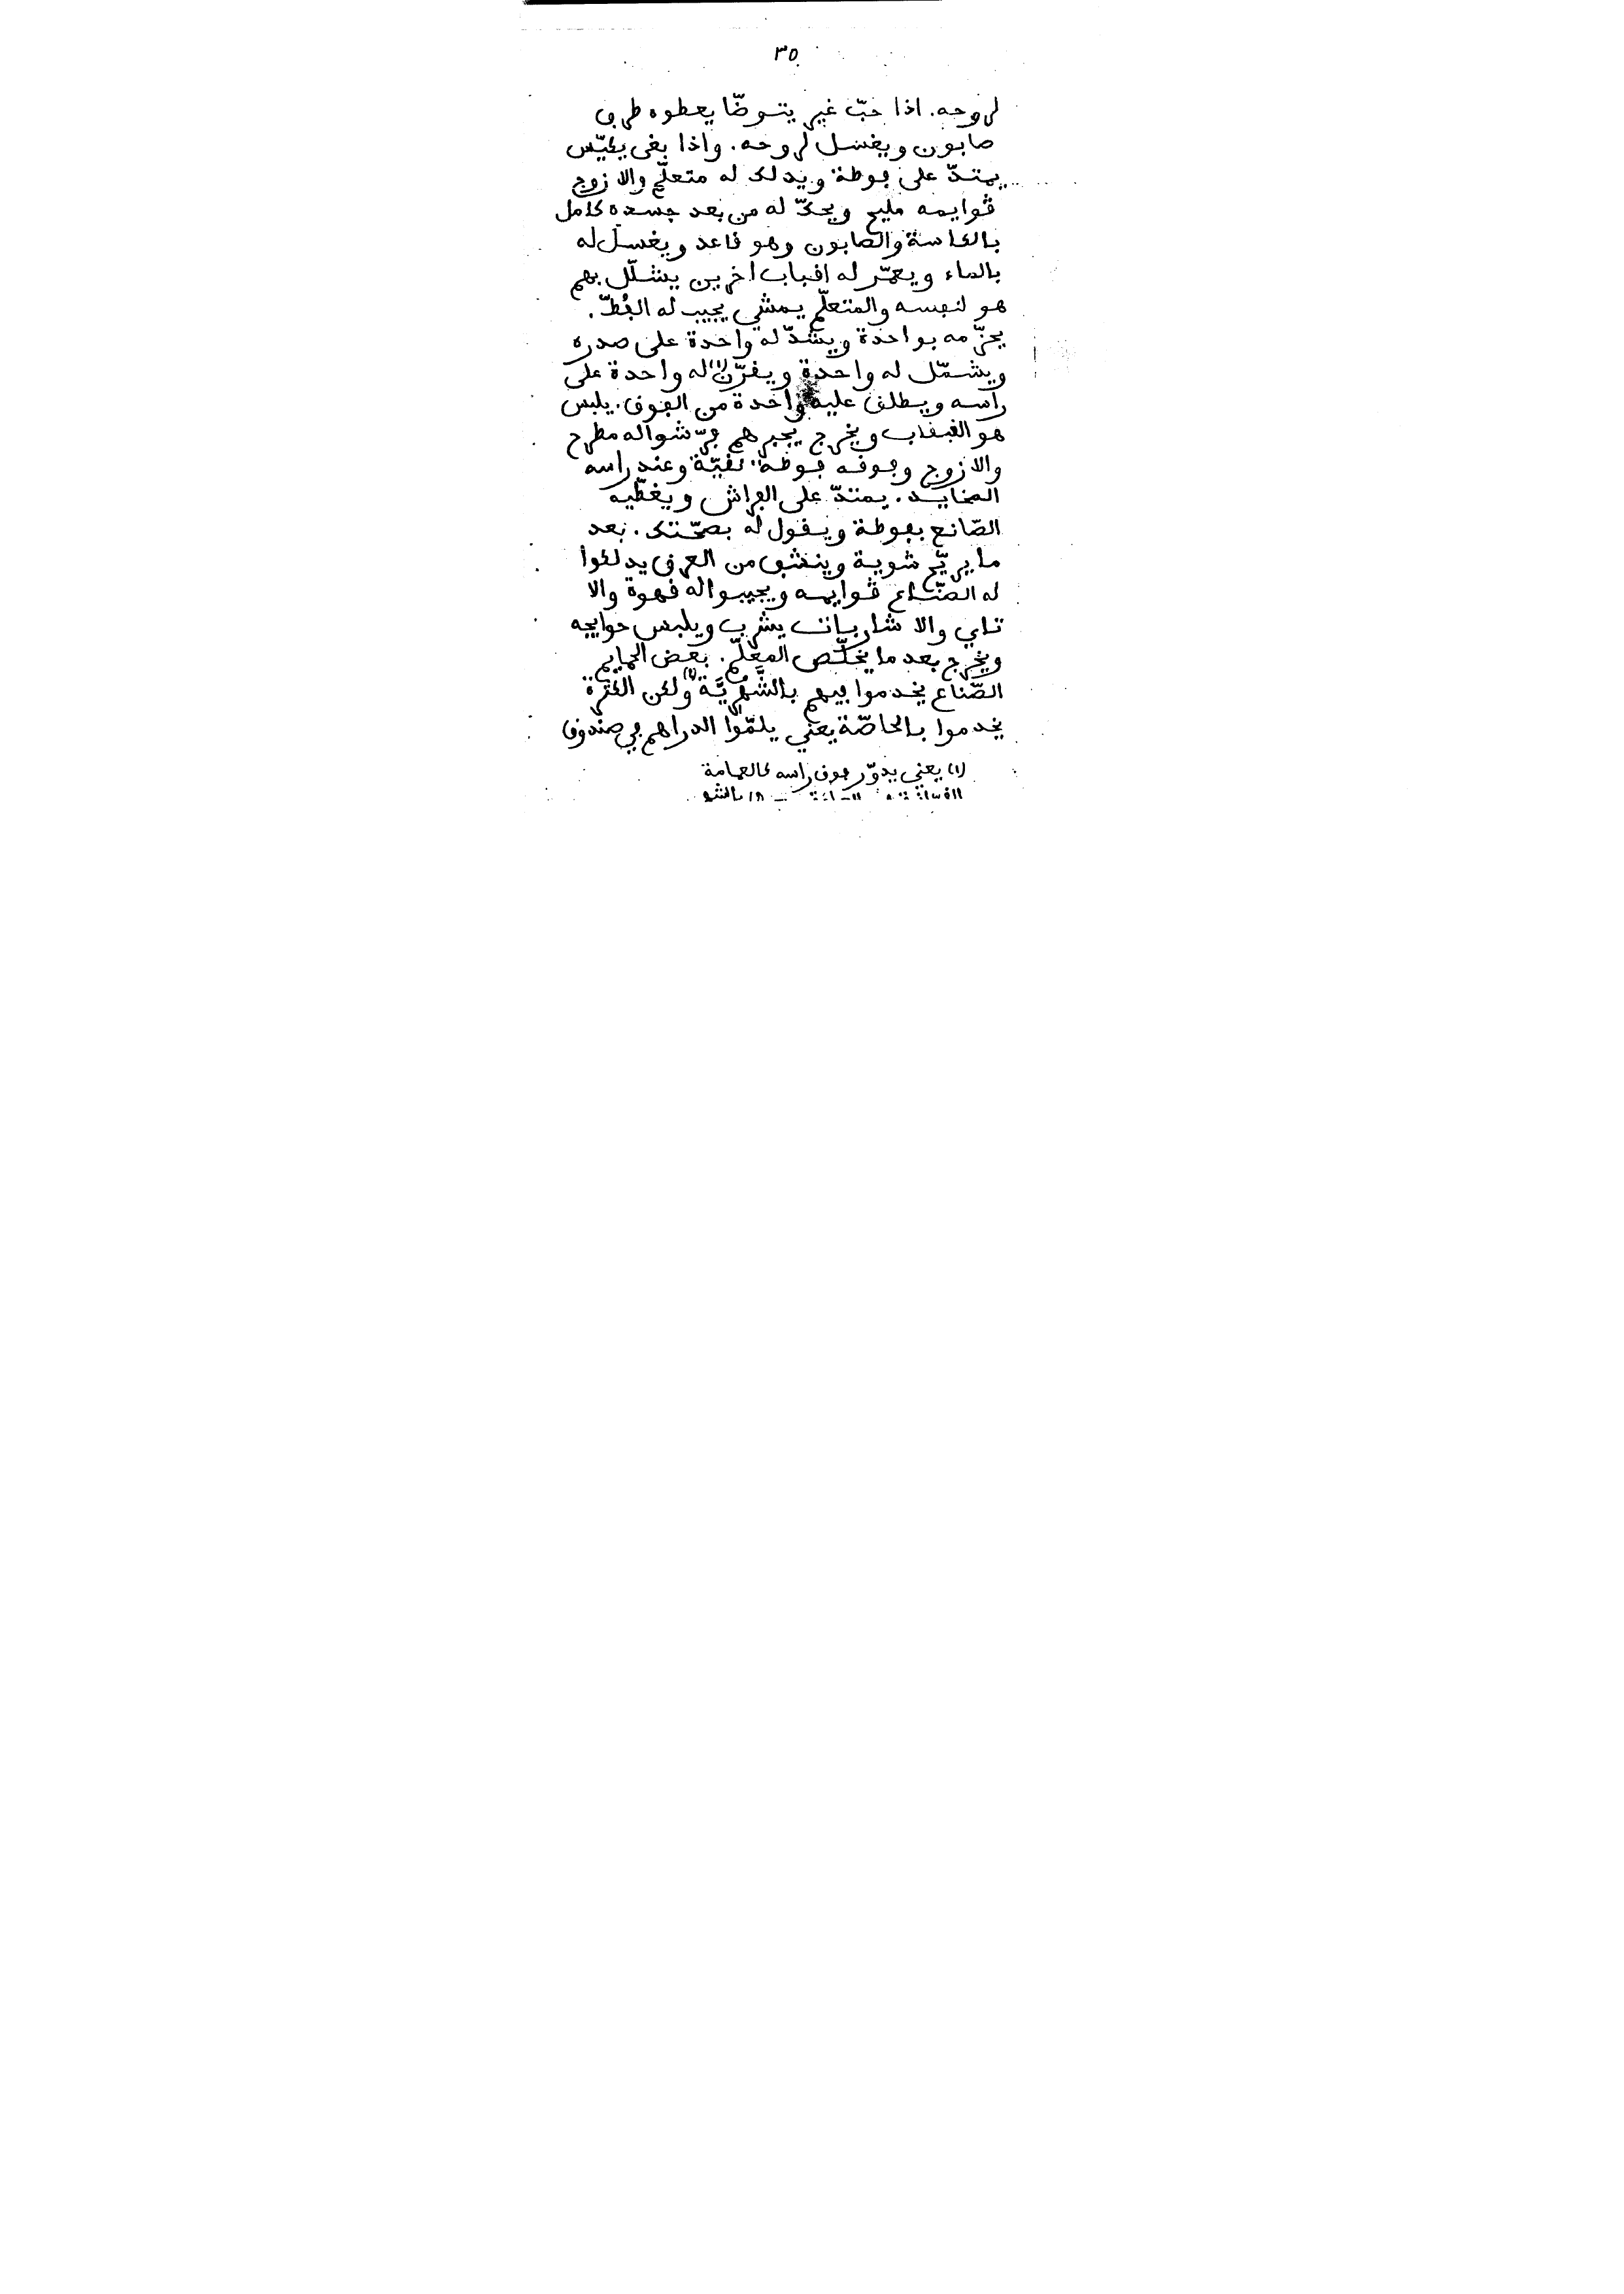 ٣٥
لروحه. اذا حبّ غير يتوضّا يعطوه طرف
صابون ويغسل لروحه. واذا بغى يكيّس
يمتدّ على فوطة ويدلك له متعلّم والا زوج
ڨوايمه مليح ويحكّ له من بعد جسده كامل
بالكاسة والصابون وهو قاعد ويغسل له
بالماء ويعمّر له اقباب اخرين يشلّل بهم
هو لنفسه والمتعلّم يمشي يجيب له الفُطّ.
يحزّمه بواحدة ويشدّ له واحدة على صدره
ويشمّل له واحدة ويقرّن(١) له واحدة على
راسه ويطلق عليه واحدة من الفوق. يلبس
هو القبقاب ويخرج يجبرهم فرّشوا له مطرح
والا زوج وفوقه فوطة نقيّة وعند راسه
المخايد. يمتدّ على الفراش ويغطّيه
الصّانع بفوطة ويقول له بصحّتك. بعد
ما يريّح شوية وينشف من العرق يدلكوا
له الصّنّاع ڨوايمه ويجيبوا له قهوة والا
تاي والا شاربات يشرب ويلبس حوايجه
ويخرج بعد ما يخلّص المعلّم. بعض الحمايم
الصّناع يخدموا فيهم بالشَّهْرِيَّة(٢) ولكن الكثرة
يخدموا بالحاصّة يعني يلمّوا الدراهم في صندوق
(١) يعني يدوّر فوق راسه كالعمامة